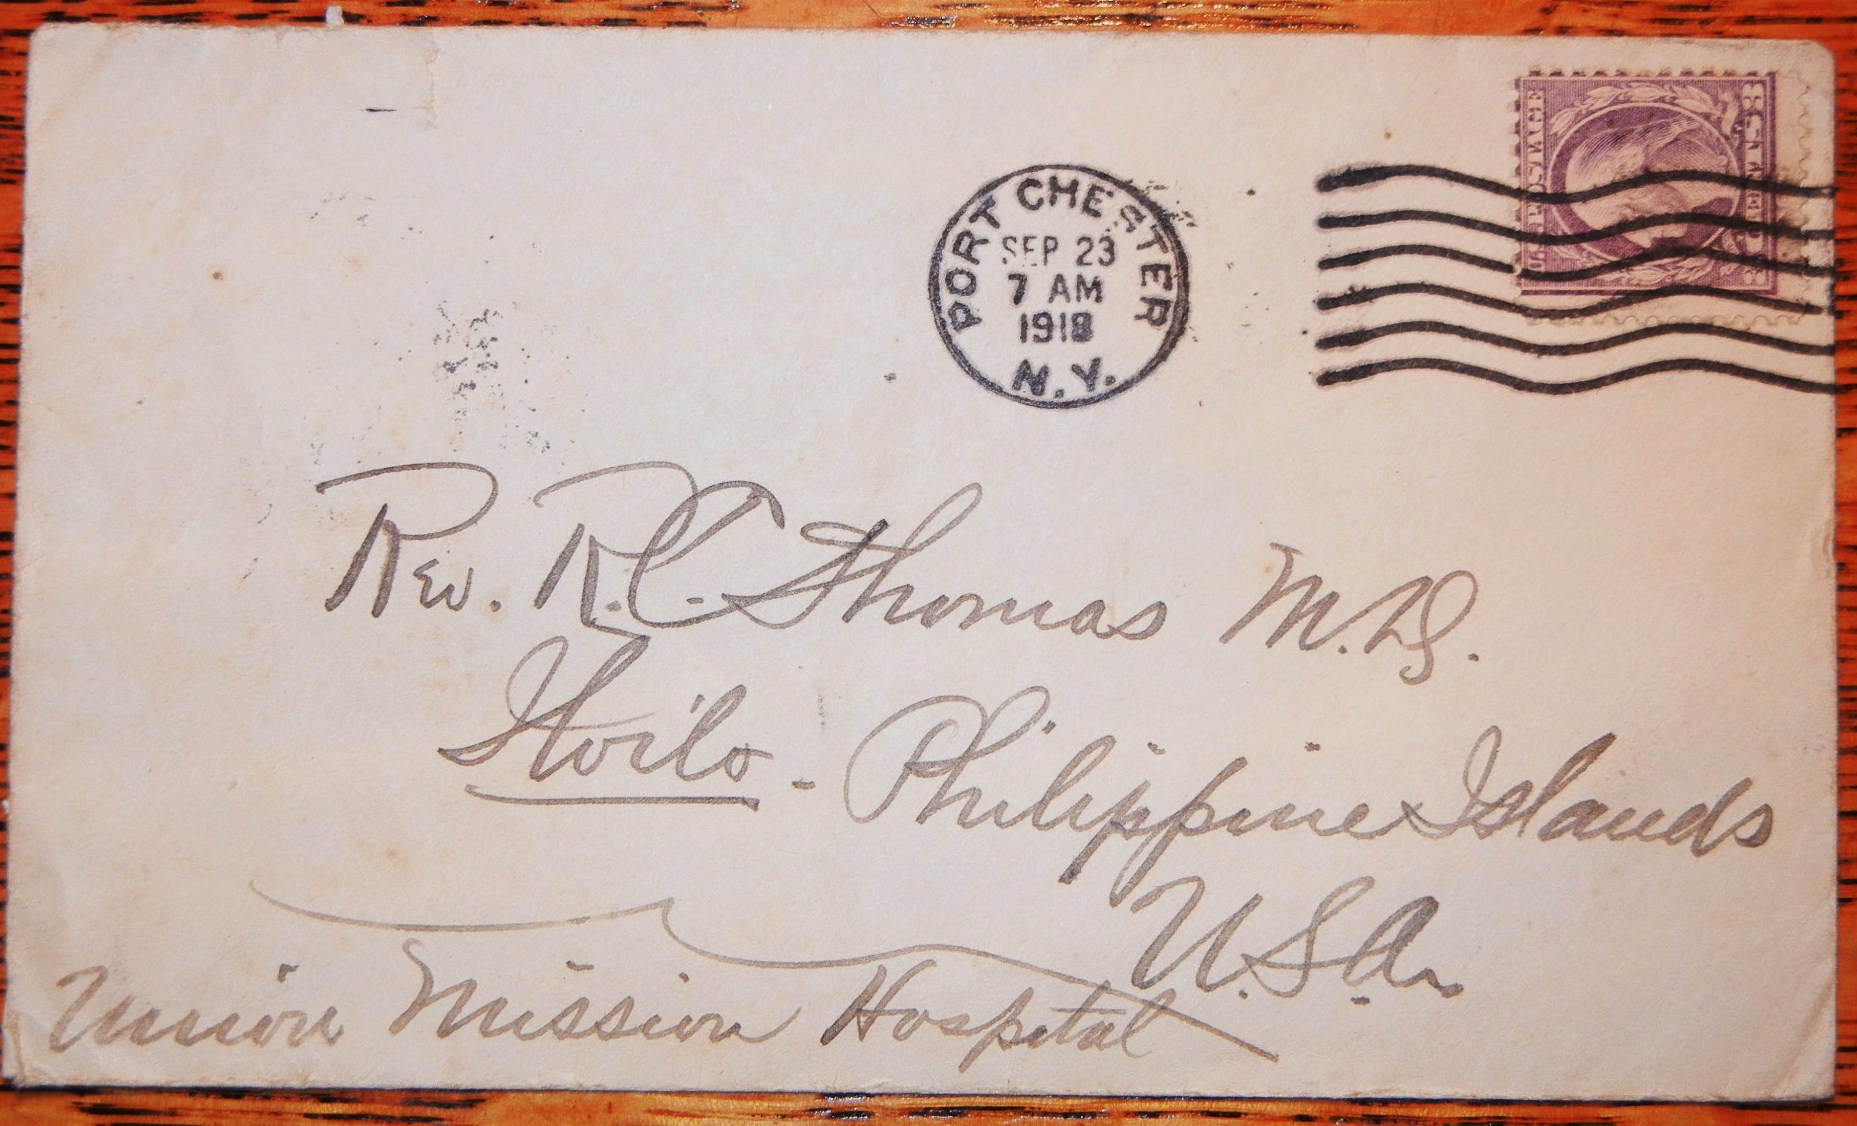 U.S. POSTAGE
3 CENTS 3
PORT CHESTER
SEP 23
7 AM
1918
N.Y.
Rev. R.C. Thomas M.D.
Iloilo - Philippine Islands
U.S.A.
Union Mission Hospital